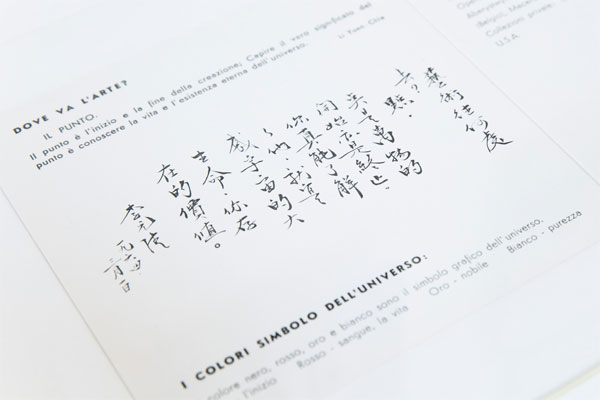 DOVE VA L'ARTE?
IL PUNTO.
Il punto è l'inizio e la fine della creazione; Capire il vero significato del
punto è conoscere la vita e l'esistenza eterna dell'universo.
Li Yuen Chia
藝術往何處
去?點.
是萬物的
開始亦是終止.
你真能了解
就真
宇宙的大
生命.你存
在的價值。
李元佳
(Belgio),
Collezioni private:
U.S.A.
I COLORI SIMBOLO DELL'UNIVERSO:
colore nero, rosso, oro e bianco sono il simbolo grafico dell'universo.
l'inizio Rosso - sangue, la vita Oro - nobile Bianco - purezza